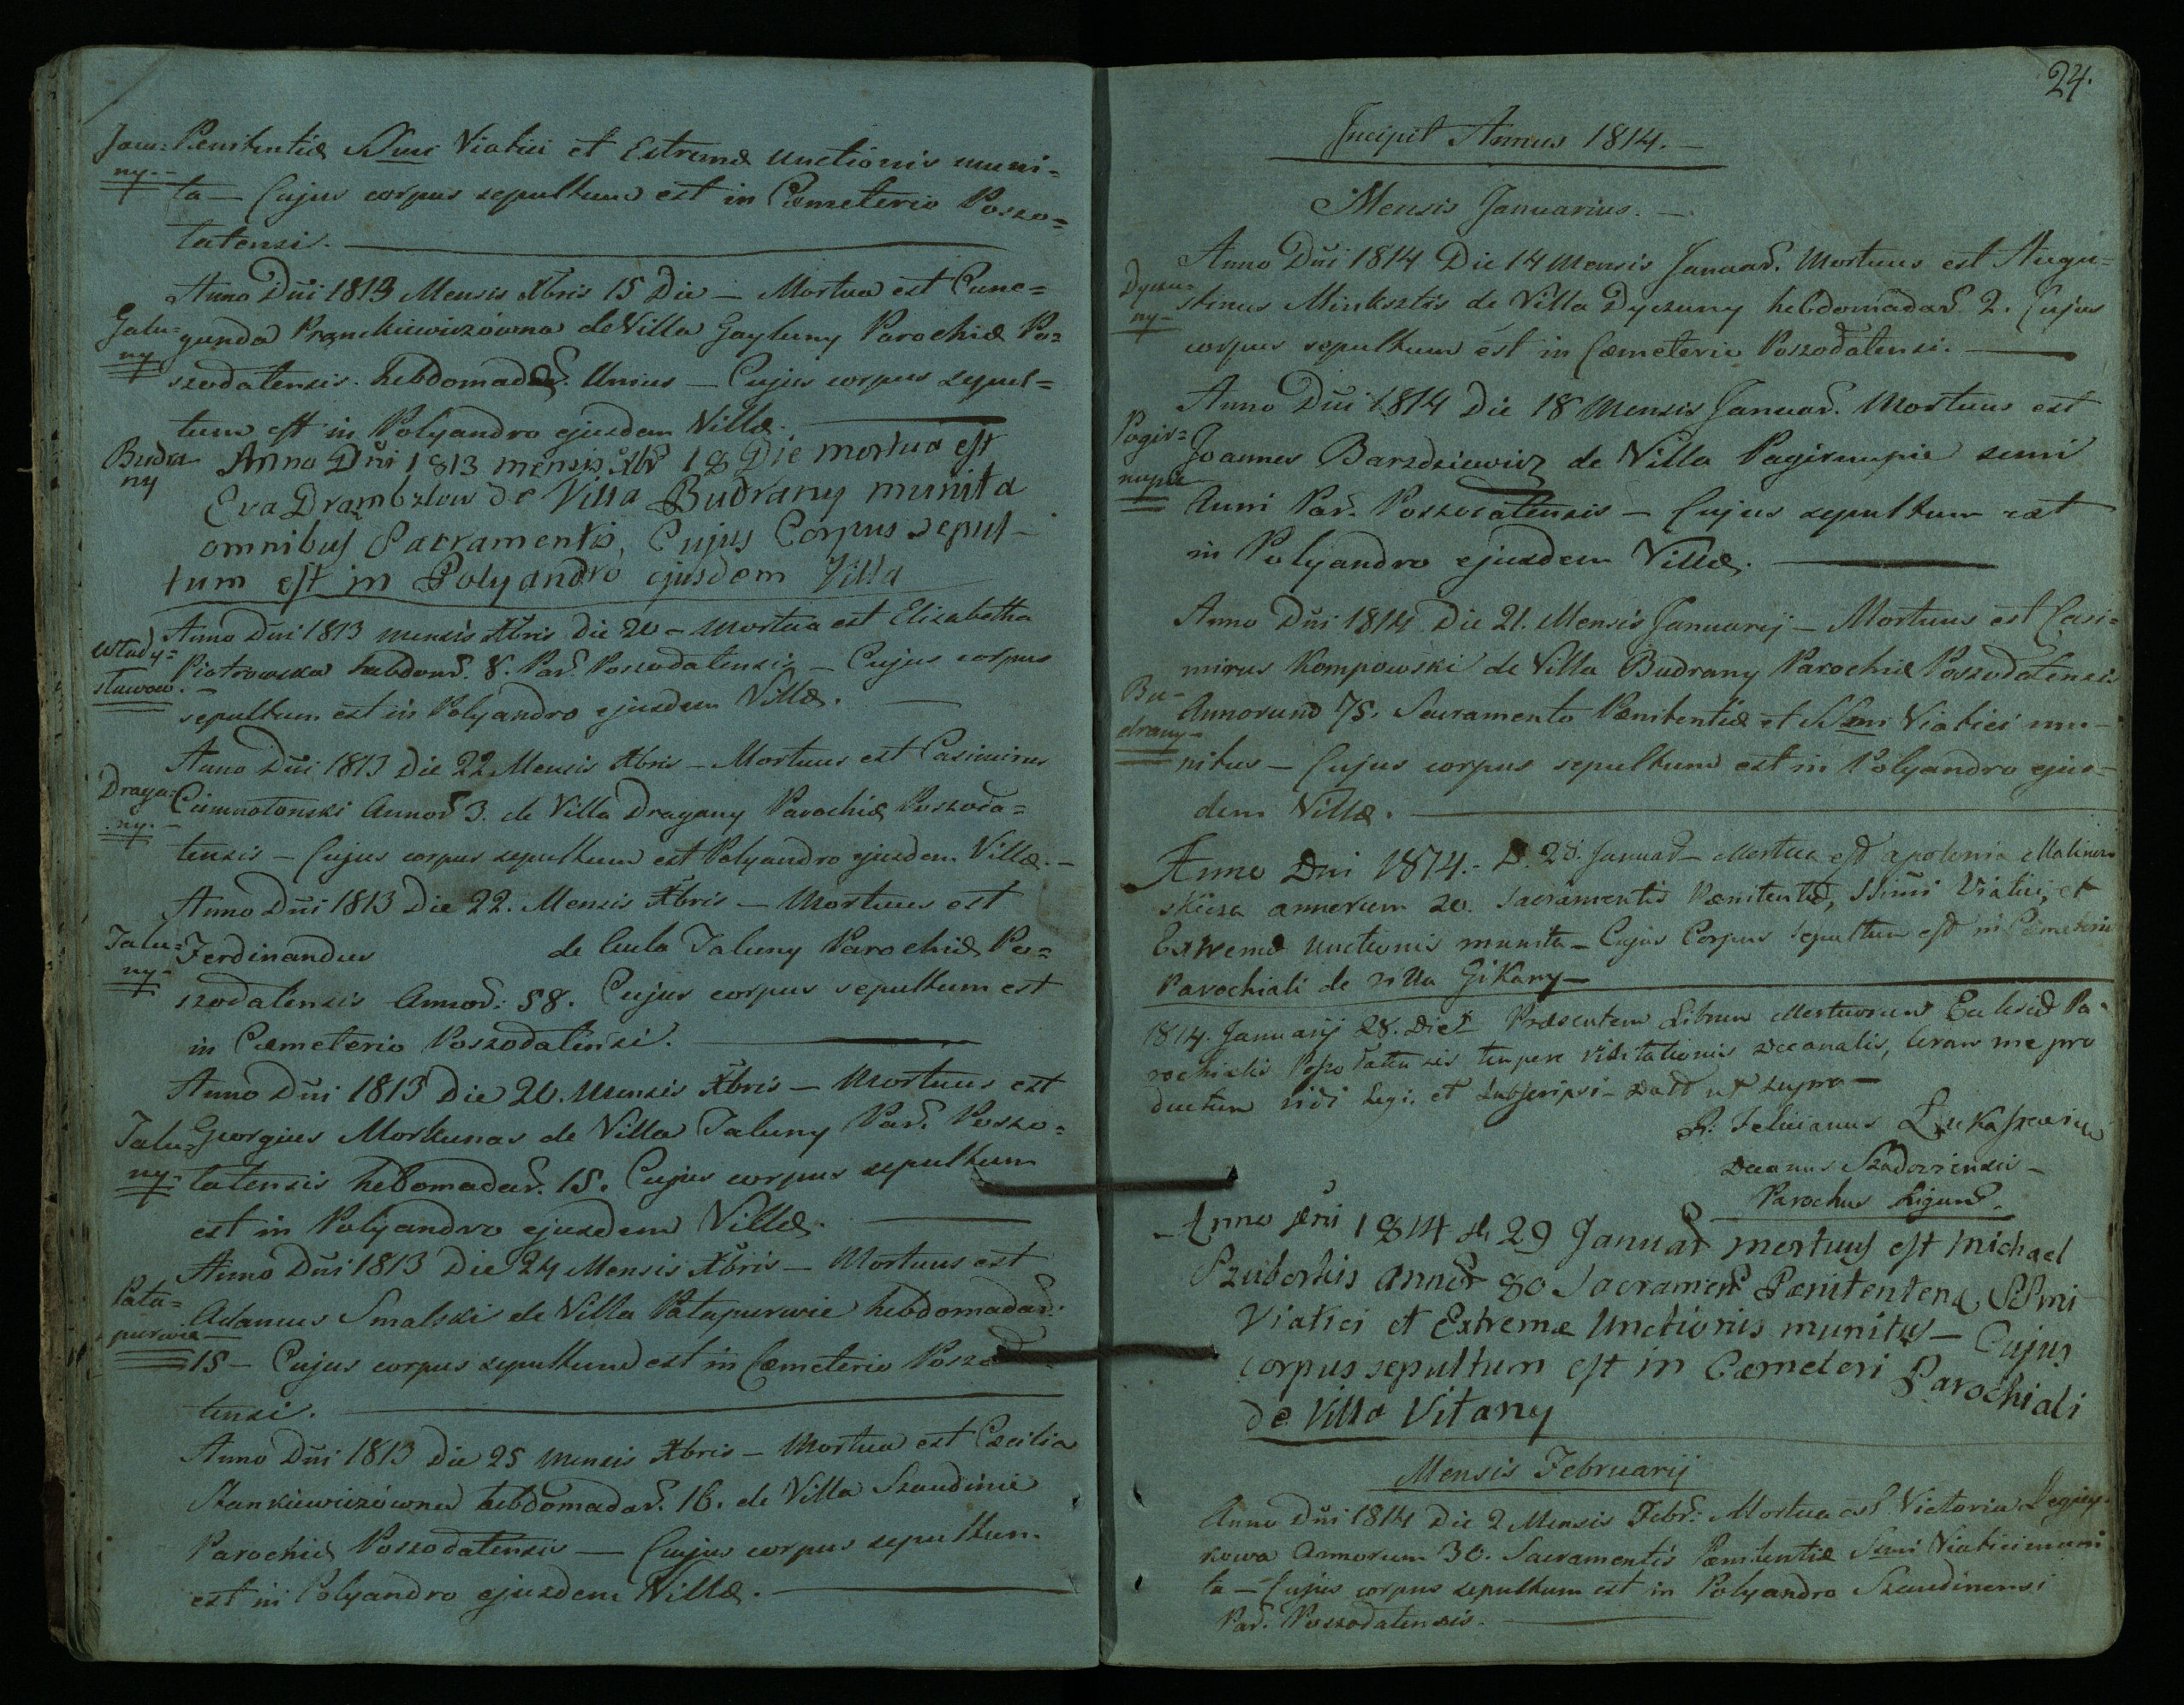 Pœnitentiæ SSmi Viatici et Extremæ unctionis muni=
ny.-
ta — Cujus corpus sepultum est in Cœmeterio Poszo=
tatensi.
Anno Dñi 1813 Mensis Xbris 15 Die — Mortua est Cune=
Galu=
gunda Pranckiewiczówna de Villa Gayluny Parochiæ Po=
ny
szodatensis. hebdomadar. Unius — Cujus corpus sepul=
tum est in Polyandro ejusdem Villæ.
Budra
ny
Anno Dñi 1813 mensis Xbr 18 Die mortua est
Eva de Villa Budrany munita
omnibus Sacramentis, Cujus Corpus sepul-
tum est in Polyandro ejusdem Villa
Anno Dñi 1813 mensis Xbris Die 20 — Mortua est Elisabetha
Wlady=
Piotrowska hebdom. 8. Par. Poszodatensis — Cujus corpus
slawow.
sepultum est in Polyandro ejusdem Villæ.
Anno Dñi 1813 Die 22 Mensis Xbris — Mortuus est Casimirus
Draga=
Annor 3. de Villa Dragany Parochiæ Poszoda=
ny.
tensis — Cujus corpus sepultum est Polyandro ejusdem Villæ. —
Anno Dñi 1813 Die 22. Mensis Xbris — Mortuus est
Jalu=
Ferdinandus de Aula Jaluny Parochiæ Po=
ny-
szodatensis Annor: 58. Cujus corpus sepultum est
in Cœmeterio Poszodatensi.
Anno Dñi 1813 Die 20. Mensis Xbris — Mortuus est
Jalu=
Georgius Morkunas de Villa Jaluny Par. Poszo=
ny-
tatensis hebomadar. 15. Cujus corpus sepultum
est in Polyandro ejusdem Villæ.
Anno Dñi 1813 Die 24 Mensis Xbris — Mortuus est
Pata=
Adamus Smalski de Villa Patapurwie hebdomadar:
purwie
15 — Cujus corpus sepultum est in Cœmeterio
tensi.
Anno Dñi 1813 Die 25 mensis Xbris — Mortua est Cæcilia
Stankiewiczówna hebdomadar. 16. de Villa Szaudinie
Parochiæ Poszodatensis — Cujus corpus sepultum
est in Polyandro ejusdem Villæ.
24.
Incipit Annus 1814. —
Mensis Januarius. —
Anno Dñi 1814 Die 14 Mensis Januar. Mortuus est Augu=
stinus Minksztis de Villa Dyczuny hebdomadar. 2. Cujus
ny-
corpus sepultum est in Cœmeterio Poszodatensi.
Anno Dñi 1814 Die 18 Mensis Januar. Mortuus est
Pagir=
Joannes Barzdziewicz de Villa Pagirnupie semi
nupie
Anni Par. Poszodatensis — Cujus sepultum est
in Polyandro ejusdem Villæ.
Anno Dñi 1814 Die 21. Mensis Januarij — Mortuus est Casi=
mirus Kompowski de Villa Budrany Parochiæ Poszodatensis
Bu-
Annorum 75. Sacramento Pœnitentiæ et SSmi Viatici mu-
drany-
nitus — Cujus corpus sepultum est in Polyandro ejus-
dem Villæ.
Anno Dni 1814. — D. 28. Januar — Mortua est apolonia
annorum 20. Sacramentis Pœnitentiæ, SSimi Viatici, et
Extremæ Unctionis munita — Cujus Corpus Sepultum est in Cœmeterio
Parochiali de villa Gikany —
1814. Januarij 28. Die Præsentem Librum Mortuorum Ecclesiæ Pa-
rochialis tempore Visitationis Decanalis, Coram me pro
ductum vidi Legi et Subscripsi — Dato ut supra —
Decanus Szadoviensis —
Parochus
Anno Dni 1814 d. 29 Januar mortuus est Michael
Annor 80 Sacramen Pœnitenten, SSmi
Viatici et Extremæ Unctionis munitus — Cujus
corpus sepultum est in Cœmeteri Parochiali
de Villa Vitany
Mensis Februarij
Anno Dñi 1814 Die 2 Mensis Febr: Mortua est Victoria
kowa Annorum 30. Sacramentis Pœnitentiæ Ssmi Viatici muni
ta — Cujus corpus sepultum est in Polyandro Szaudinensi
Par. Poszodatensis.